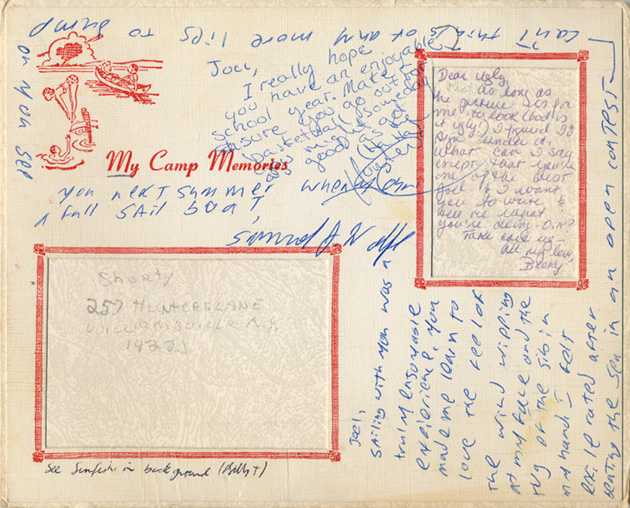 My Camp Memories
Joel,
I really hope
you have an enjoyable
school year. Make
sure you go out for
basketball. Someday
you might get
good.
Dear Ugly,
as long as
the picture is for
me to look (God is
it ugly!) I figured I'd
sign under it.
What can I say
except that you're
one of the best
& I want
you to write &
let me know
you're doing. O.K?
Take care us –
all my love,
Becky
Joel,
sailing with you was a
truly enjoyable
experience. You
made me learn to
love the feel of
the wind whipping
at my face and the
tug of the jib in
my hand. I felt
exilerated after
beating the Sea in an open contest
can't think of any more lies to
on you see
you next summer when
a full sail boat,
Samuel A Wolfe
Shorty
257 Hunterslane
Williamsville N.Y.
14221
See Sunfish in background (Billy T)